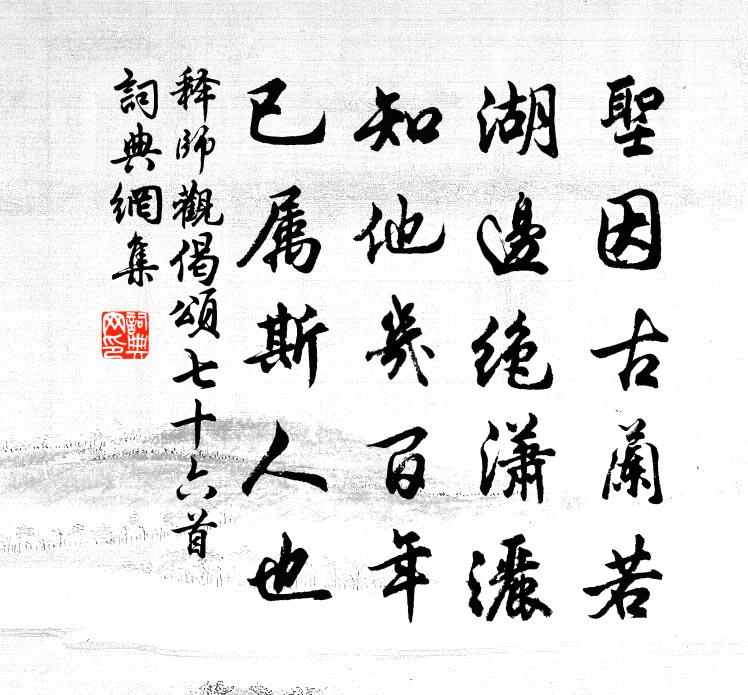 聖因古蘭若
湖邊絶瀟灑
知他幾百年
已属斯人也
释師觀偈頌七十六首
詞典網集
詞典网印